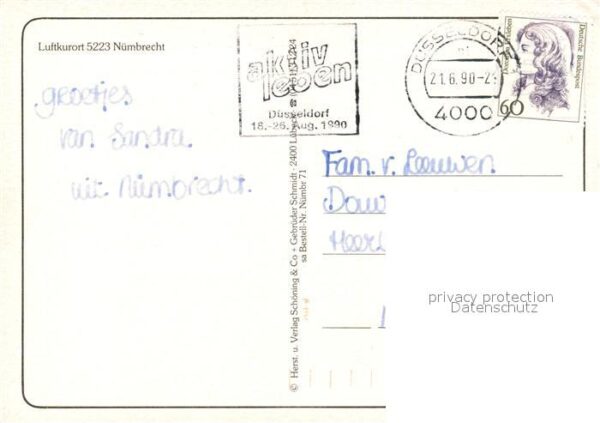 Luftkurort 5223 Nümbrecht
groetjes
van Sandra
uit Nümbrecht.
aktiv
leben
Düsseldorf
18.-26. Aug. 1990
DÜSSELDORF
21.6.90-2
4000
60
Deutsche Bundespost
© Herst. u. Verlag Schöning & Co + Gebrüder Schmidt · 2400 Lübeck
sa Bestell-Nr. Nümbr 71
Fam. v. Leeuwen
Heerl
privacy protection
Datenschutz